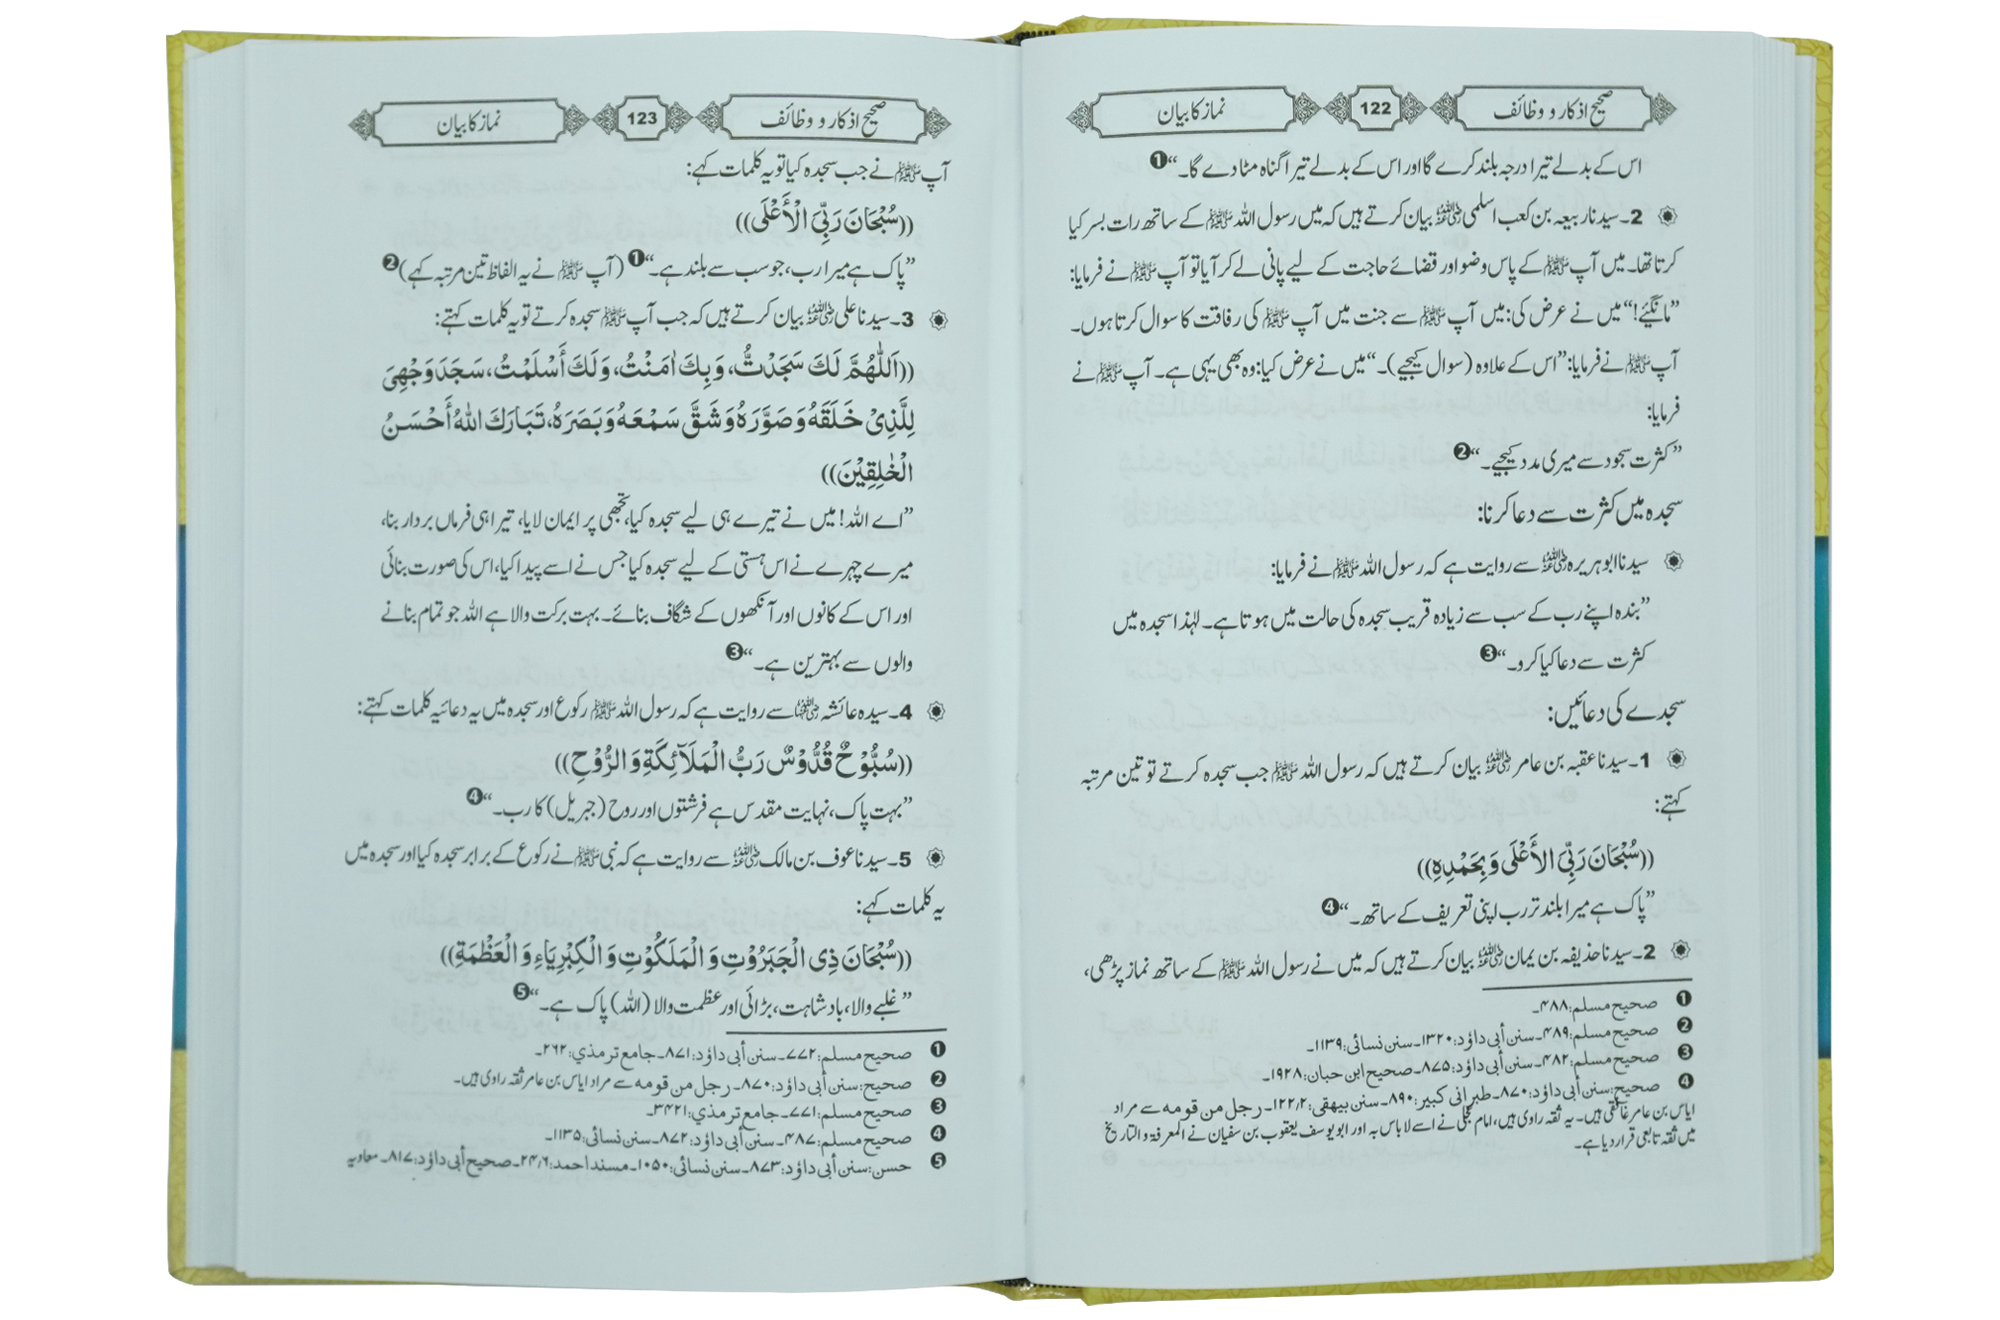 صحیح اذکار و وظائف 122 نماز کا بیان
اس کے بدلے تیرا درجہ بلند کرے گا اور اس کے بدلے تیرا گناہ مٹا دے گا۔“❶
2۔ سیدنا ربیعہ بن کعب اسلمی رضی اللہ عنہ بیان کرتے ہیں کہ میں رسول اللہ ﷺ کے ساتھ رات بسر کیا
کرتا تھا۔ میں آپ ﷺ کے پاس وضو اور قضائے حاجت کے لیے پانی لے کر آیا تو آپ ﷺ نے فرمایا:
”مانگیے!“ میں نے عرض کی: میں آپ ﷺ سے جنت میں آپ ﷺ کی رفاقت کا سوال کرتا ہوں۔
آپ ﷺ نے فرمایا: ”اس کے علاوہ (سوال کیجیے)۔“ میں نے عرض کیا: وہ بھی یہی ہے۔ آپ ﷺ نے
فرمایا:
”کثرت سجود سے میری مدد کیجیے۔“❷
سجدہ میں کثرت سے دعا کرنا:
سیدنا ابو ہریرہ رضی اللہ عنہ سے روایت ہے کہ رسول اللہ ﷺ نے فرمایا:
”بندہ اپنے رب کے سب سے زیادہ قریب سجدہ کی حالت میں ہوتا ہے۔ لہٰذا سجدہ میں
کثرت سے دعا کیا کرو۔“❸
سجدے کی دعائیں:
1۔ سیدنا عقبہ بن عامر رضی اللہ عنہ بیان کرتے ہیں کہ رسول اللہ ﷺ جب سجدہ کرتے تو تین مرتبہ
کہتے:
((سُبْحَانَ رَبِّیَ الأَعْلَی وَبِحَمْدِهِ))
”پاک ہے میرا بلند تر رب اپنی تعریف کے ساتھ۔“❹
2۔ سیدنا حذیفہ بن یمان رضی اللہ عنہ بیان کرتے ہیں کہ میں نے رسول اللہ ﷺ کے ساتھ نماز پڑھی،
❶ صحیح مسلم: ۴۸۸۔
❷ صحیح مسلم: ۴۸۹۔ سنن أبی داؤد: ۱۳۲۰۔ سنن نسائی: ۱۱۳۹۔
❸ صحیح مسلم: ۴۸۲۔ سنن أبی داؤد: ۸۷۵۔ صحیح ابن حبان: ۱۹۲۸۔
❹ صحیح: سنن أبی داؤد: ۸۷۰۔ طبرانی کبیر: ۸۹۰۔ سنن بیھقی: ۱۲۲/۲۔ رجل من قومہ سے مراد
ایاس بن عامر غافقی ہیں۔ یہ ثقہ راوی ہیں، امام عجلی نے اسے لا باس بہ اور ابو یوسف یعقوب بن سفیان نے المعرفۃ والتاریخ
میں ثقہ تابعی قرار دیا ہے۔
صحیح اذکار و وظائف 123 نماز کا بیان
آپ ﷺ نے جب سجدہ کیا تو یہ کلمات کہے:
((سُبْحَانَ رَبِّیَ الْأَعْلَی))
”پاک ہے میرا رب، جو سب سے بلند ہے۔“❶ (آپ ﷺ نے یہ الفاظ تین مرتبہ کہے)❷
3۔ سیدنا علی رضی اللہ عنہ بیان کرتے ہیں کہ جب آپ ﷺ سجدہ کرتے تو یہ کلمات کہتے:
((اَللّٰهُمَّ لَكَ سَجَدْتُّ، وَبِكَ اٰمَنْتُ، وَلَكَ أَسْلَمْتُ، سَجَدَ وَجْهِیَ
لِلَّذِیْ خَلَقَهُ وَصَوَّرَهُ وَشَقَّ سَمْعَهُ وَبَصَرَهُ، تَبَارَكَ اللّٰهُ أَحْسَنُ
الْخٰلِقِیْنَ))
”اے اللہ! میں نے تیرے ہی لیے سجدہ کیا، تجھی پر ایمان لایا، تیرا ہی فرماں بردار بنا،
میرے چہرے نے اس ہستی کے لیے سجدہ کیا جس نے اسے پیدا کیا، اس کی صورت بنائی
اور اس کے کانوں اور آنکھوں کے شگاف بنائے۔ بہت برکت والا ہے اللہ جو تمام بنانے
والوں سے بہترین ہے۔“❸
4۔ سیدہ عائشہ رضی اللہ عنہا سے روایت ہے کہ رسول اللہ ﷺ رکوع اور سجدہ میں یہ دعائیہ کلمات کہتے:
((سُبُّوْحٌ قُدُّوْسٌ رَبُّ الْمَلَآئِكَةِ وَالرُّوْحِ))
”بہت پاک، نہایت مقدس ہے فرشتوں اور روح (جبریل) کا رب۔“❹
5۔ سیدنا عوف بن مالک رضی اللہ عنہ سے روایت ہے کہ نبی ﷺ نے رکوع کے برابر سجدہ کیا اور سجدہ میں
یہ کلمات کہے:
((سُبْحَانَ ذِی الْجَبَرُوْتِ وَالْمَلَكُوْتِ وَالْكِبْرِیَاءِ وَالْعَظْمَةِ))
”غلبے والا، بادشاہت، بڑائی اور عظمت والا (اللہ) پاک ہے۔“❺
❶ صحیح مسلم: ۷۷۲۔ سنن أبی داؤد: ۸۷۱۔ جامع ترمذي: ۲۶۲۔
❷ صحیح: سنن أبی داؤد: ۸۷۰۔ رجل من قومہ سے مراد ایاس بن عامر ثقہ راوی ہیں۔
❸ صحیح مسلم: ۷۷۱۔ جامع ترمذي: ۳۴۲۱۔
❹ صحیح مسلم: ۴۸۷۔ سنن أبی داؤد: ۸۷۲۔ سنن نسائی: ۱۱۳۵۔
❺ حسن: سنن أبی داؤد: ۸۷۳۔ سنن نسائی: ۱۰۵۰۔ مسند احمد: ۲۴/۶۔ صحیح أبی داؤد: ۸۱۷۔ معاویہ